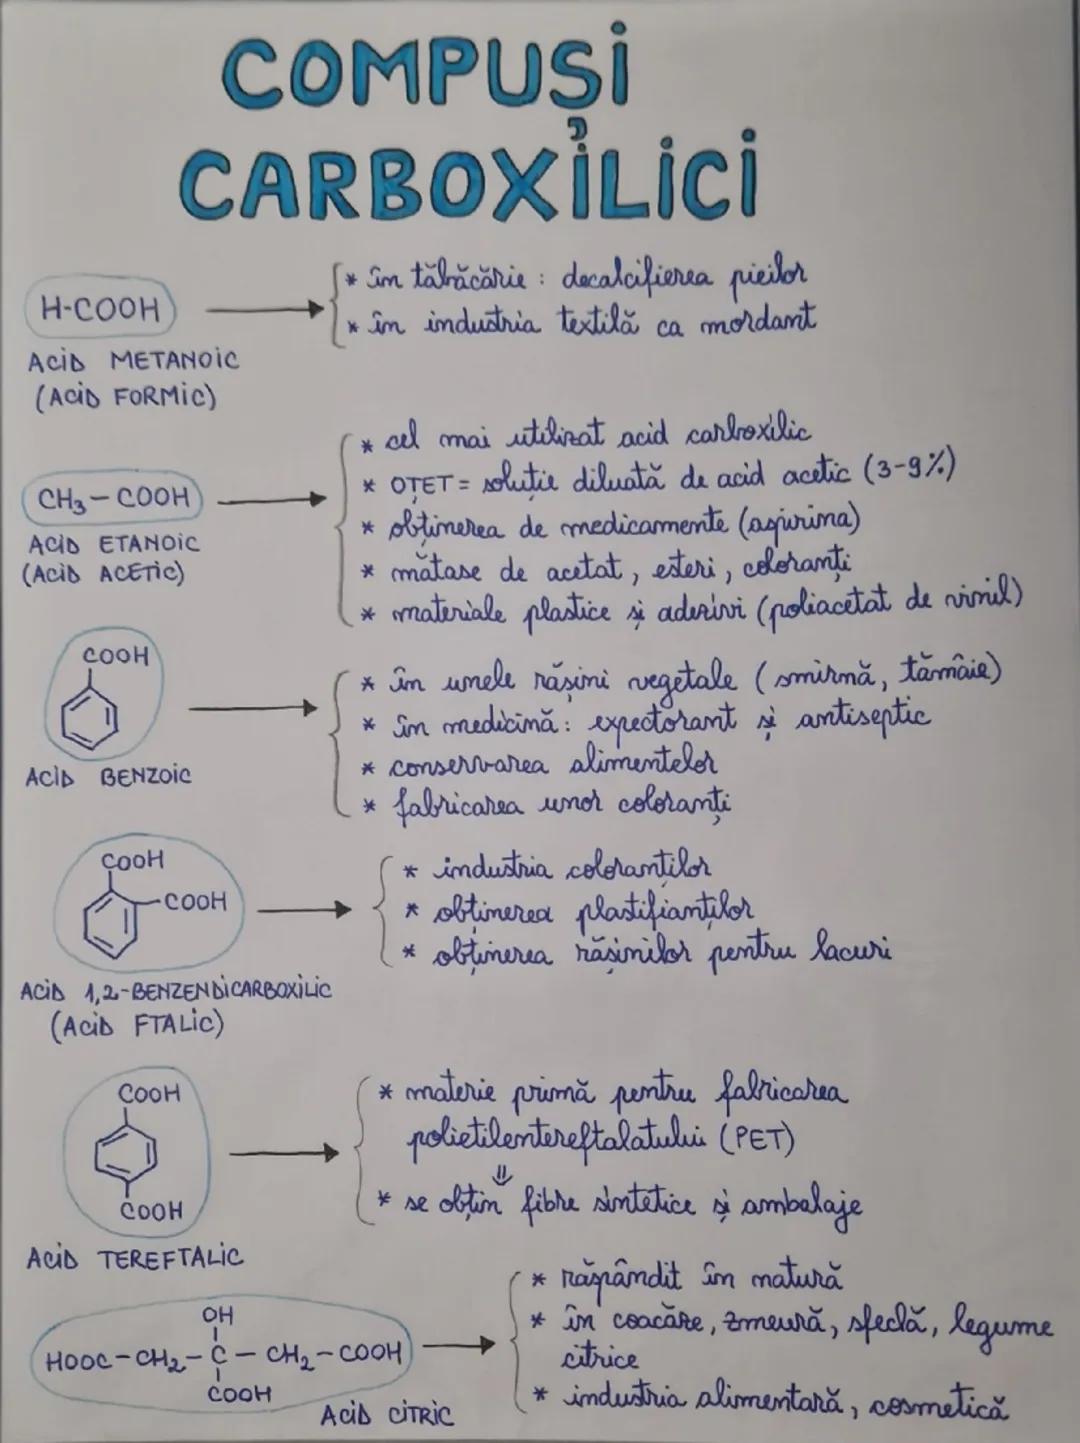 COMPUȘI
CARBOXILICI
H-COOH
ACID METANOIC
(ACID FORMIC)
* în tăbăcărie: decalcifierea pieilor
* în industria textilă ca mordant
CH3 - COOH
ACID ETANOIC
(ACID ACETIC)
* cel mai utilizat acid carboxilic
* OȚET = soluție diluată de acid acetic (3-9%)
* obținerea de medicamente (aspirina)
* mătase de acetat, esteri, coloranți
* materiale plastice și adezivi (poliacetat de vinil)
COOH
ACID BENZOIC
* în unele rășini vegetale (smirnă, tămâie)
* în medicină: expectorant și antiseptic
* conservarea alimentelor
* fabricarea unor coloranți
COOH
-COOH
ACID 1,2-BENZENDICARBOXILIC
(ACID FTALIC)
* industria coloranților
* obținerea plastifianților
* obținerea rășinilor pentru lacuri
COOH
COOH
ACID TEREFTALIC
* materie primă pentru fabricarea
polietilentereftalatului (PET)
⇓
* se obțin fibre sintetice și ambalaje
OH
HOOC-CH2-C-CH2-COOH
COOH
ACID CITRIC
* răspândit în natură
* în coacăze, zmeură, sfeclă, legume
citrice
* industria alimentară, cosmetică